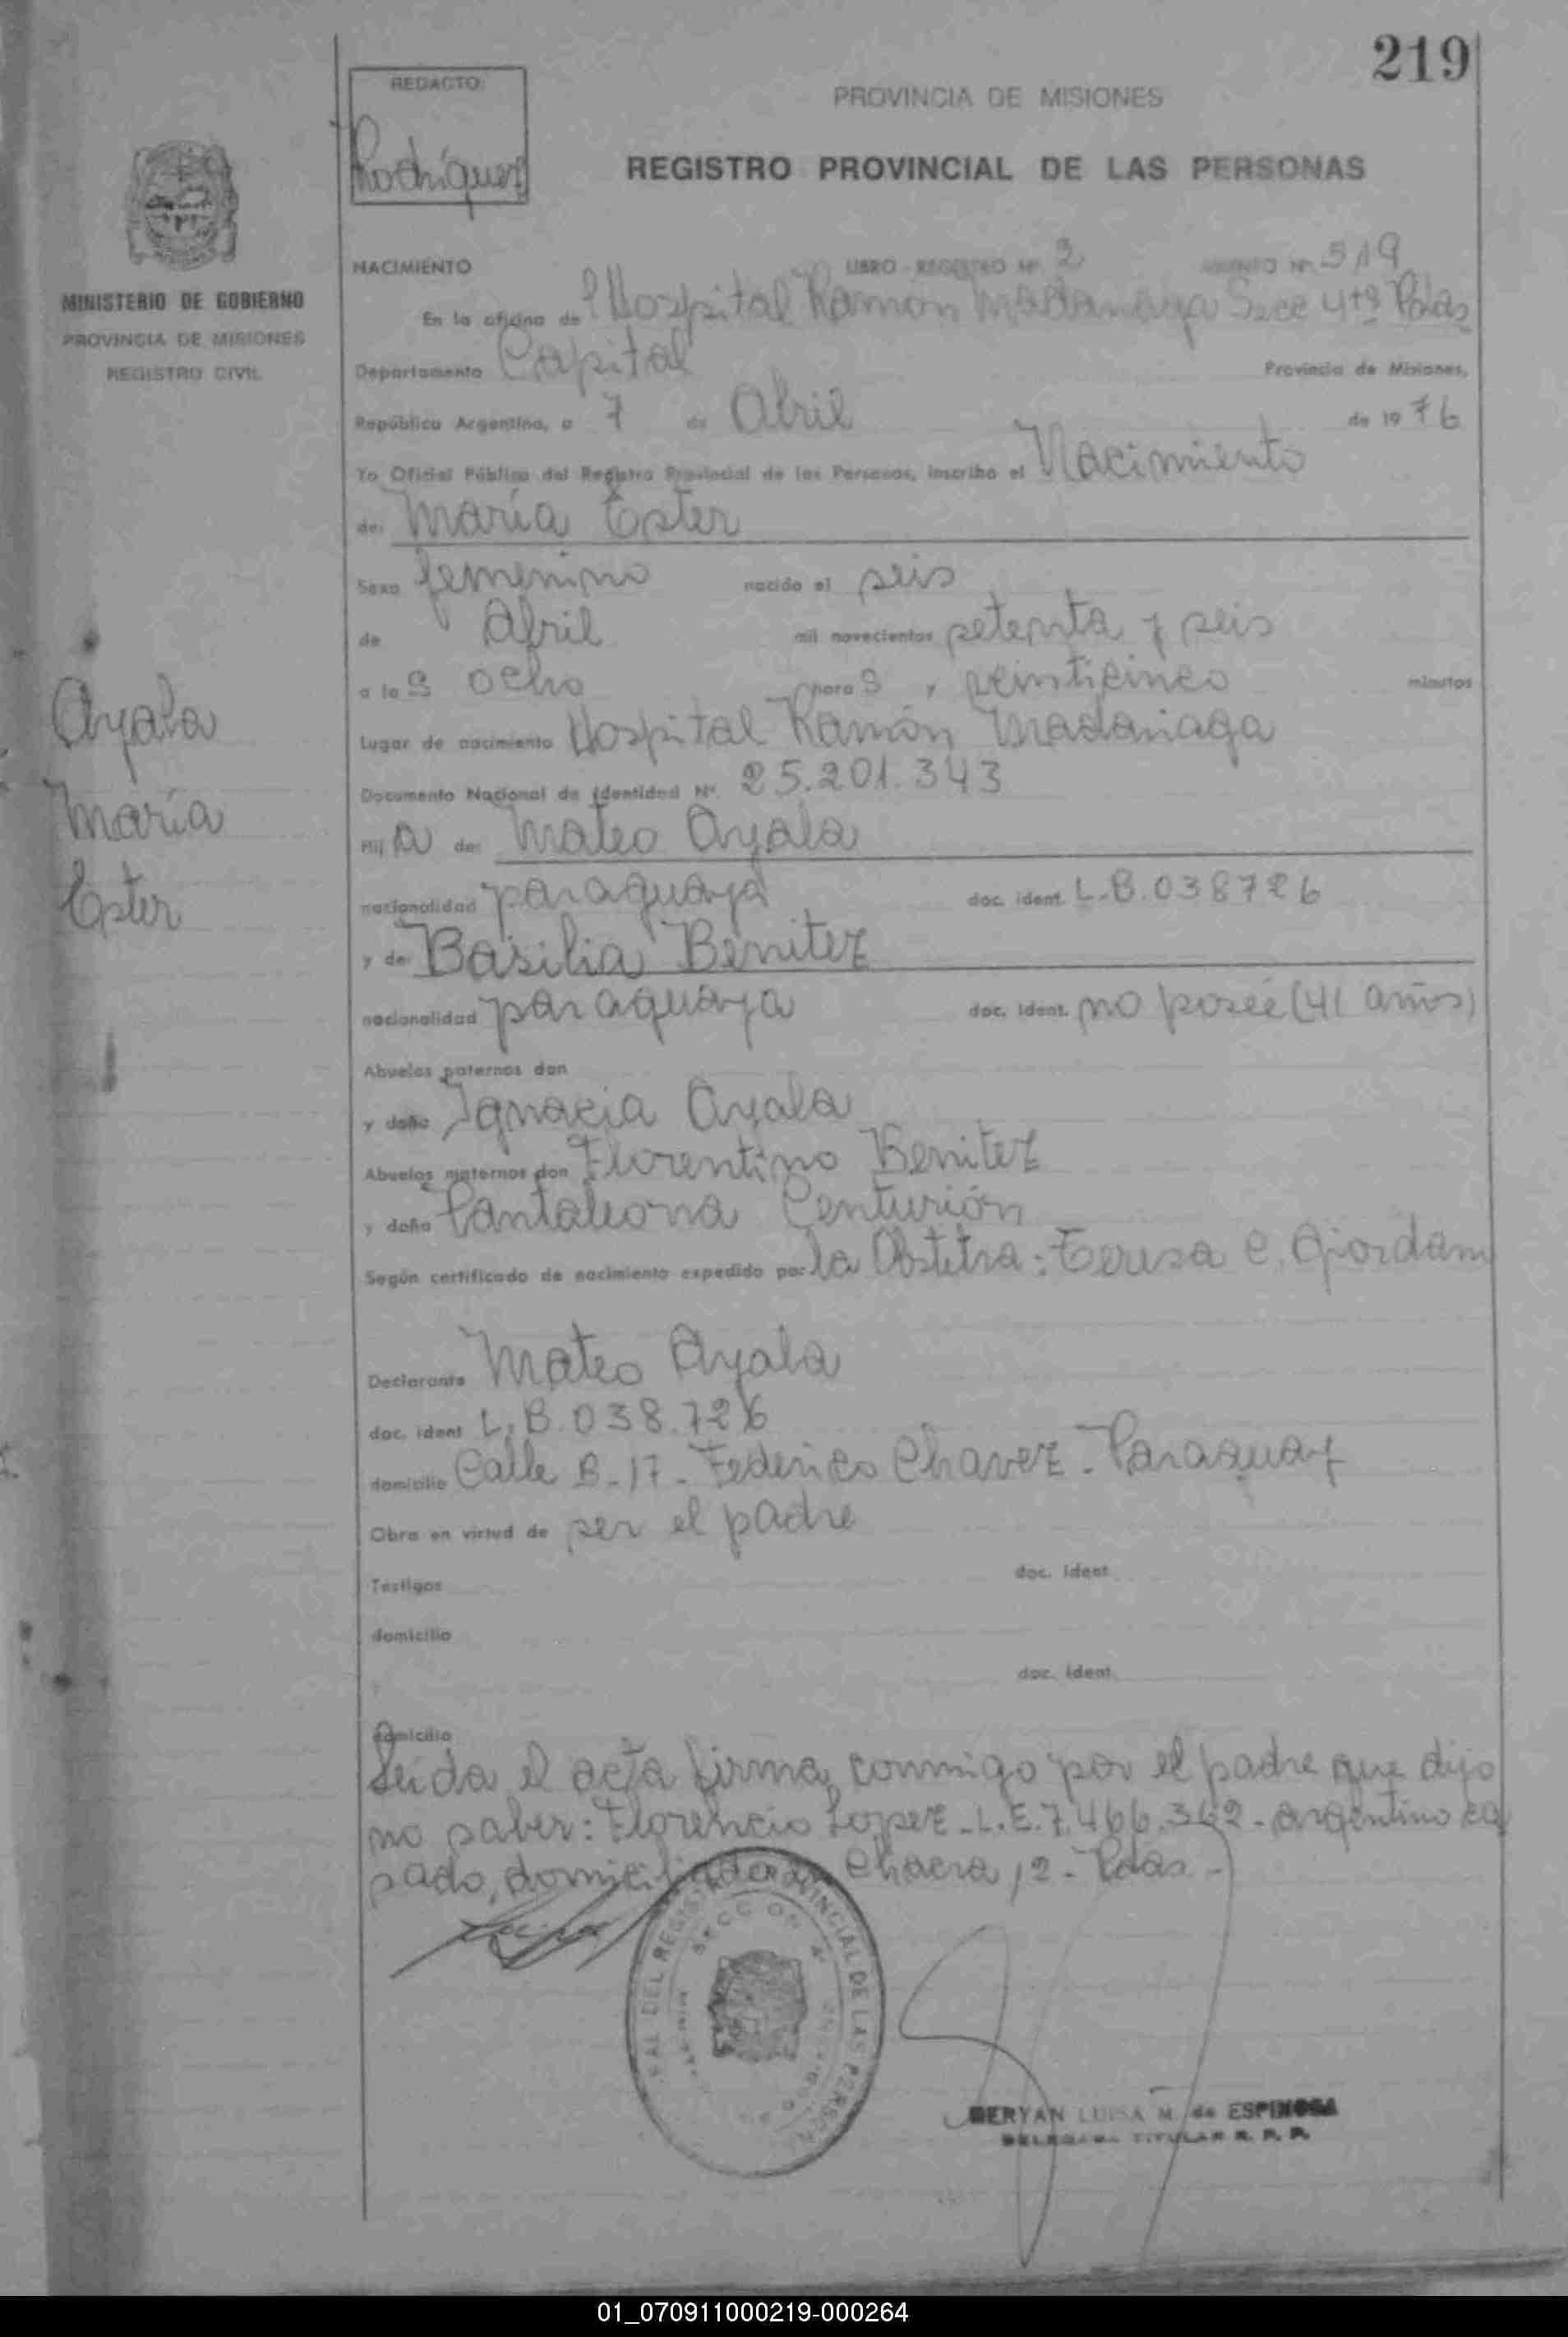 219
REDACTO:
Rodríguez
PROVINCIA DE MISIONES
REGISTRO PROVINCIAL DE LAS PERSONAS
MINISTERIO DE GOBIERNO
PROVINCIA DE MISIONES
REGISTRO CIVIL
NACIMIENTO LIBRO - REGISTRO Nº 2 ASIENTO Nº 519
En la oficina de Hospital Ramón Madariaga Secc 4ta Pdas
Departamento Capital Provincia de Misiones,
República Argentina, a 7 de Abril de 1976
Yo Oficial Público del Registro Provincial de las Personas, inscribo el Nacimiento
de: María Ester
Sexo femenino nacido el seis
de Abril mil novecientos setenta y seis
a las ocho horas y veinticinco minutos
Lugar de nacimiento Hospital Ramón Madariaga
Documento Nacional de Identidad Nº 25.201.343
Hija de: Mateo Ayala
nacionalidad paraguaya doc. ident. L.B.038726
y de: Basilia Benitez
nacionalidad paraguaya doc. ident. no poseé (41 años)
Ayala
María
Ester
Abuelos paternos don
y doña Ignacia Ayala
Abuelos maternos don Florentino Benitez
y doña Pantaleona Centurión
Según certificado de nacimiento expedido por la Obstetra: Teresa C. Giordani
Declarante Mateo Ayala
doc. ident L.B.038.726
domicilio Calle B-17- Federico Chavez - Paraguay
Obra en virtud de ser el padre
Testigos doc. ident
domicilio
doc. ident.
domicilio
Leída el acta firma conmigo por el padre que dijo
no saber: Florencio Lopez - L.E.7.466.362 - argentino ca
sado, domiciliado en Chacra 12 - Pdas -
DEL REGISTRO PROVINCIAL DE LAS PERSON
SECC
MERYAN LUISA M. de ESPINOSA
DELEGADA TITULAR R. P. P.
01_070911000219-000264